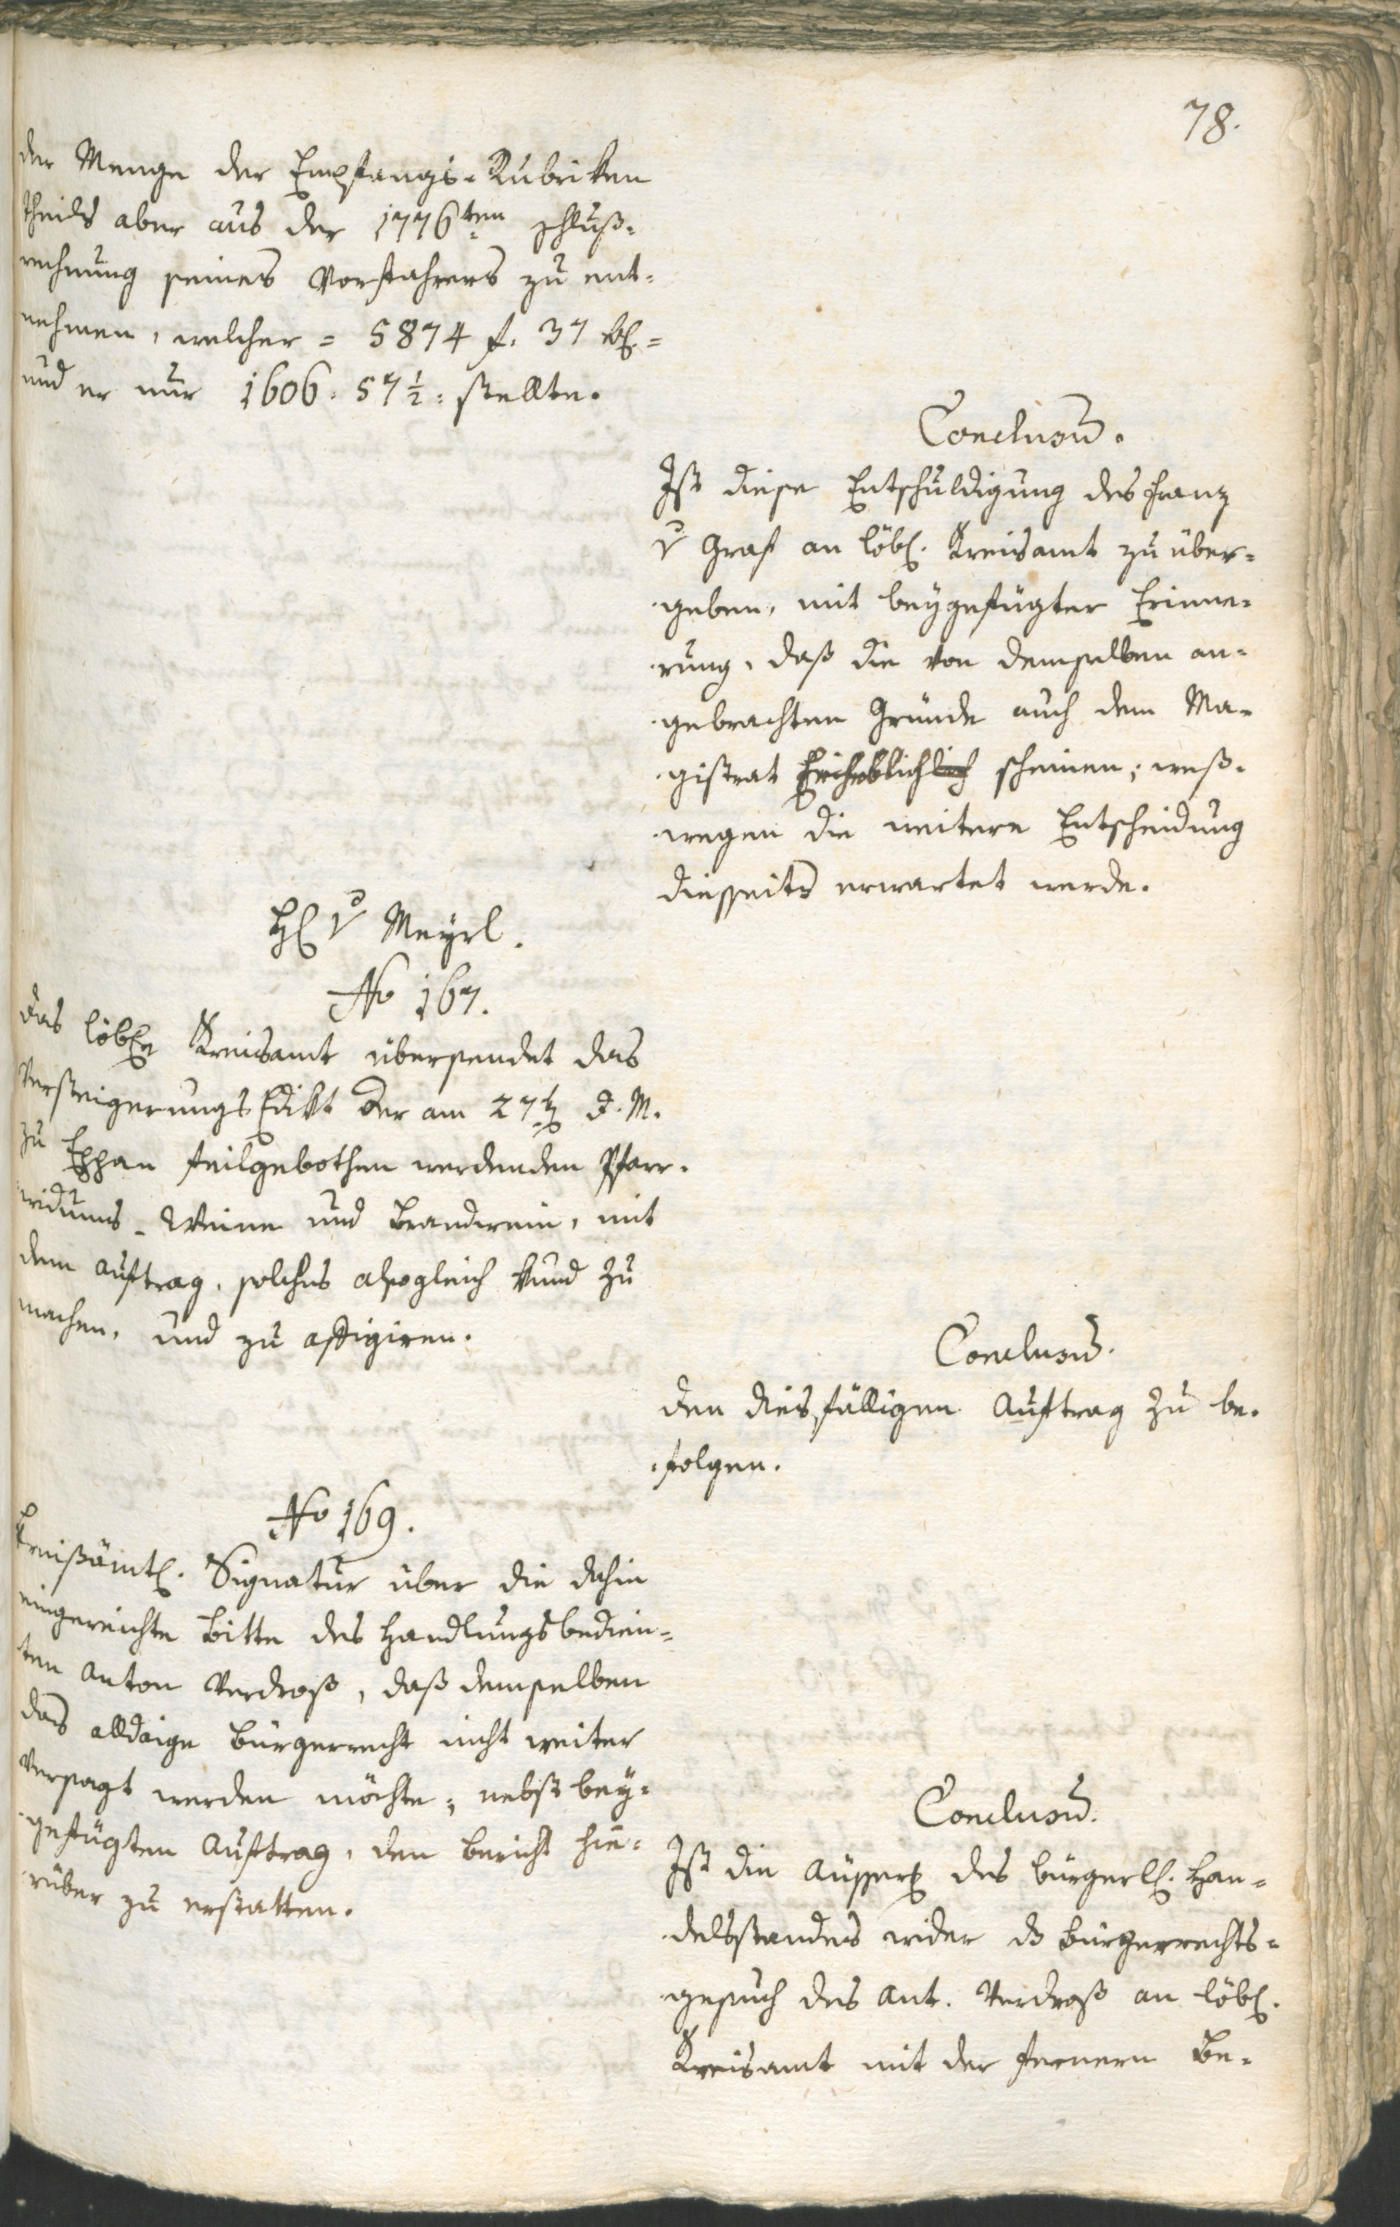 78.
der Menge der Empfangs-Rubriken
theils aber aus der 1776ten schluß-
rechnung seines Vorfahrers zu ent-
nehmen, welcher = 5874 f. 37 kr. =
und er nur 1606. 57½: stellte.
Conclusum.
Ist diese Entschuldigung des Franz
v Graf an löbl. Kreisamt zu über-
geben, mit beygefügter Erinne-
rung, daß die von demselben an-
gebrachten Gründe auch dem Ma-
gistrat scheinen; weß-
wegen die weitere Entscheidung
diesseits erwartet werde.
H v Meyrl.
No 167.
Das löbl Kreisamt übersendet das
Versteigerungs Edikt der am 27t d. M.
zu Eppan feilgebothen werdenden Pfarr-
widums-Weine und Brandwein, mit
dem auftrag, solches alsogleich kund zu
machen, und zu affigiren.
Conclusum.
Den diesfälligen Auftrag zu be-
folgen.
No 169.
Kreißämtl. Signatur über die dahin
eingereichte Bitte des Handlungsbedien-
ten Anton Verdroß, daß demselben
das alldaige Bürgerrecht nicht weiter
versagt werden möchte; nebst bey-
gefügten Auftrag, den Bericht hie-
rüber zu erstatten.
Conclusum.
Ist die Äusserg des bürgerl. Han-
delsstandes wider das Bürgerrechts-
gesuch des Ant. Verdroß an löbl.
Kreisamt mit der fernern Be-